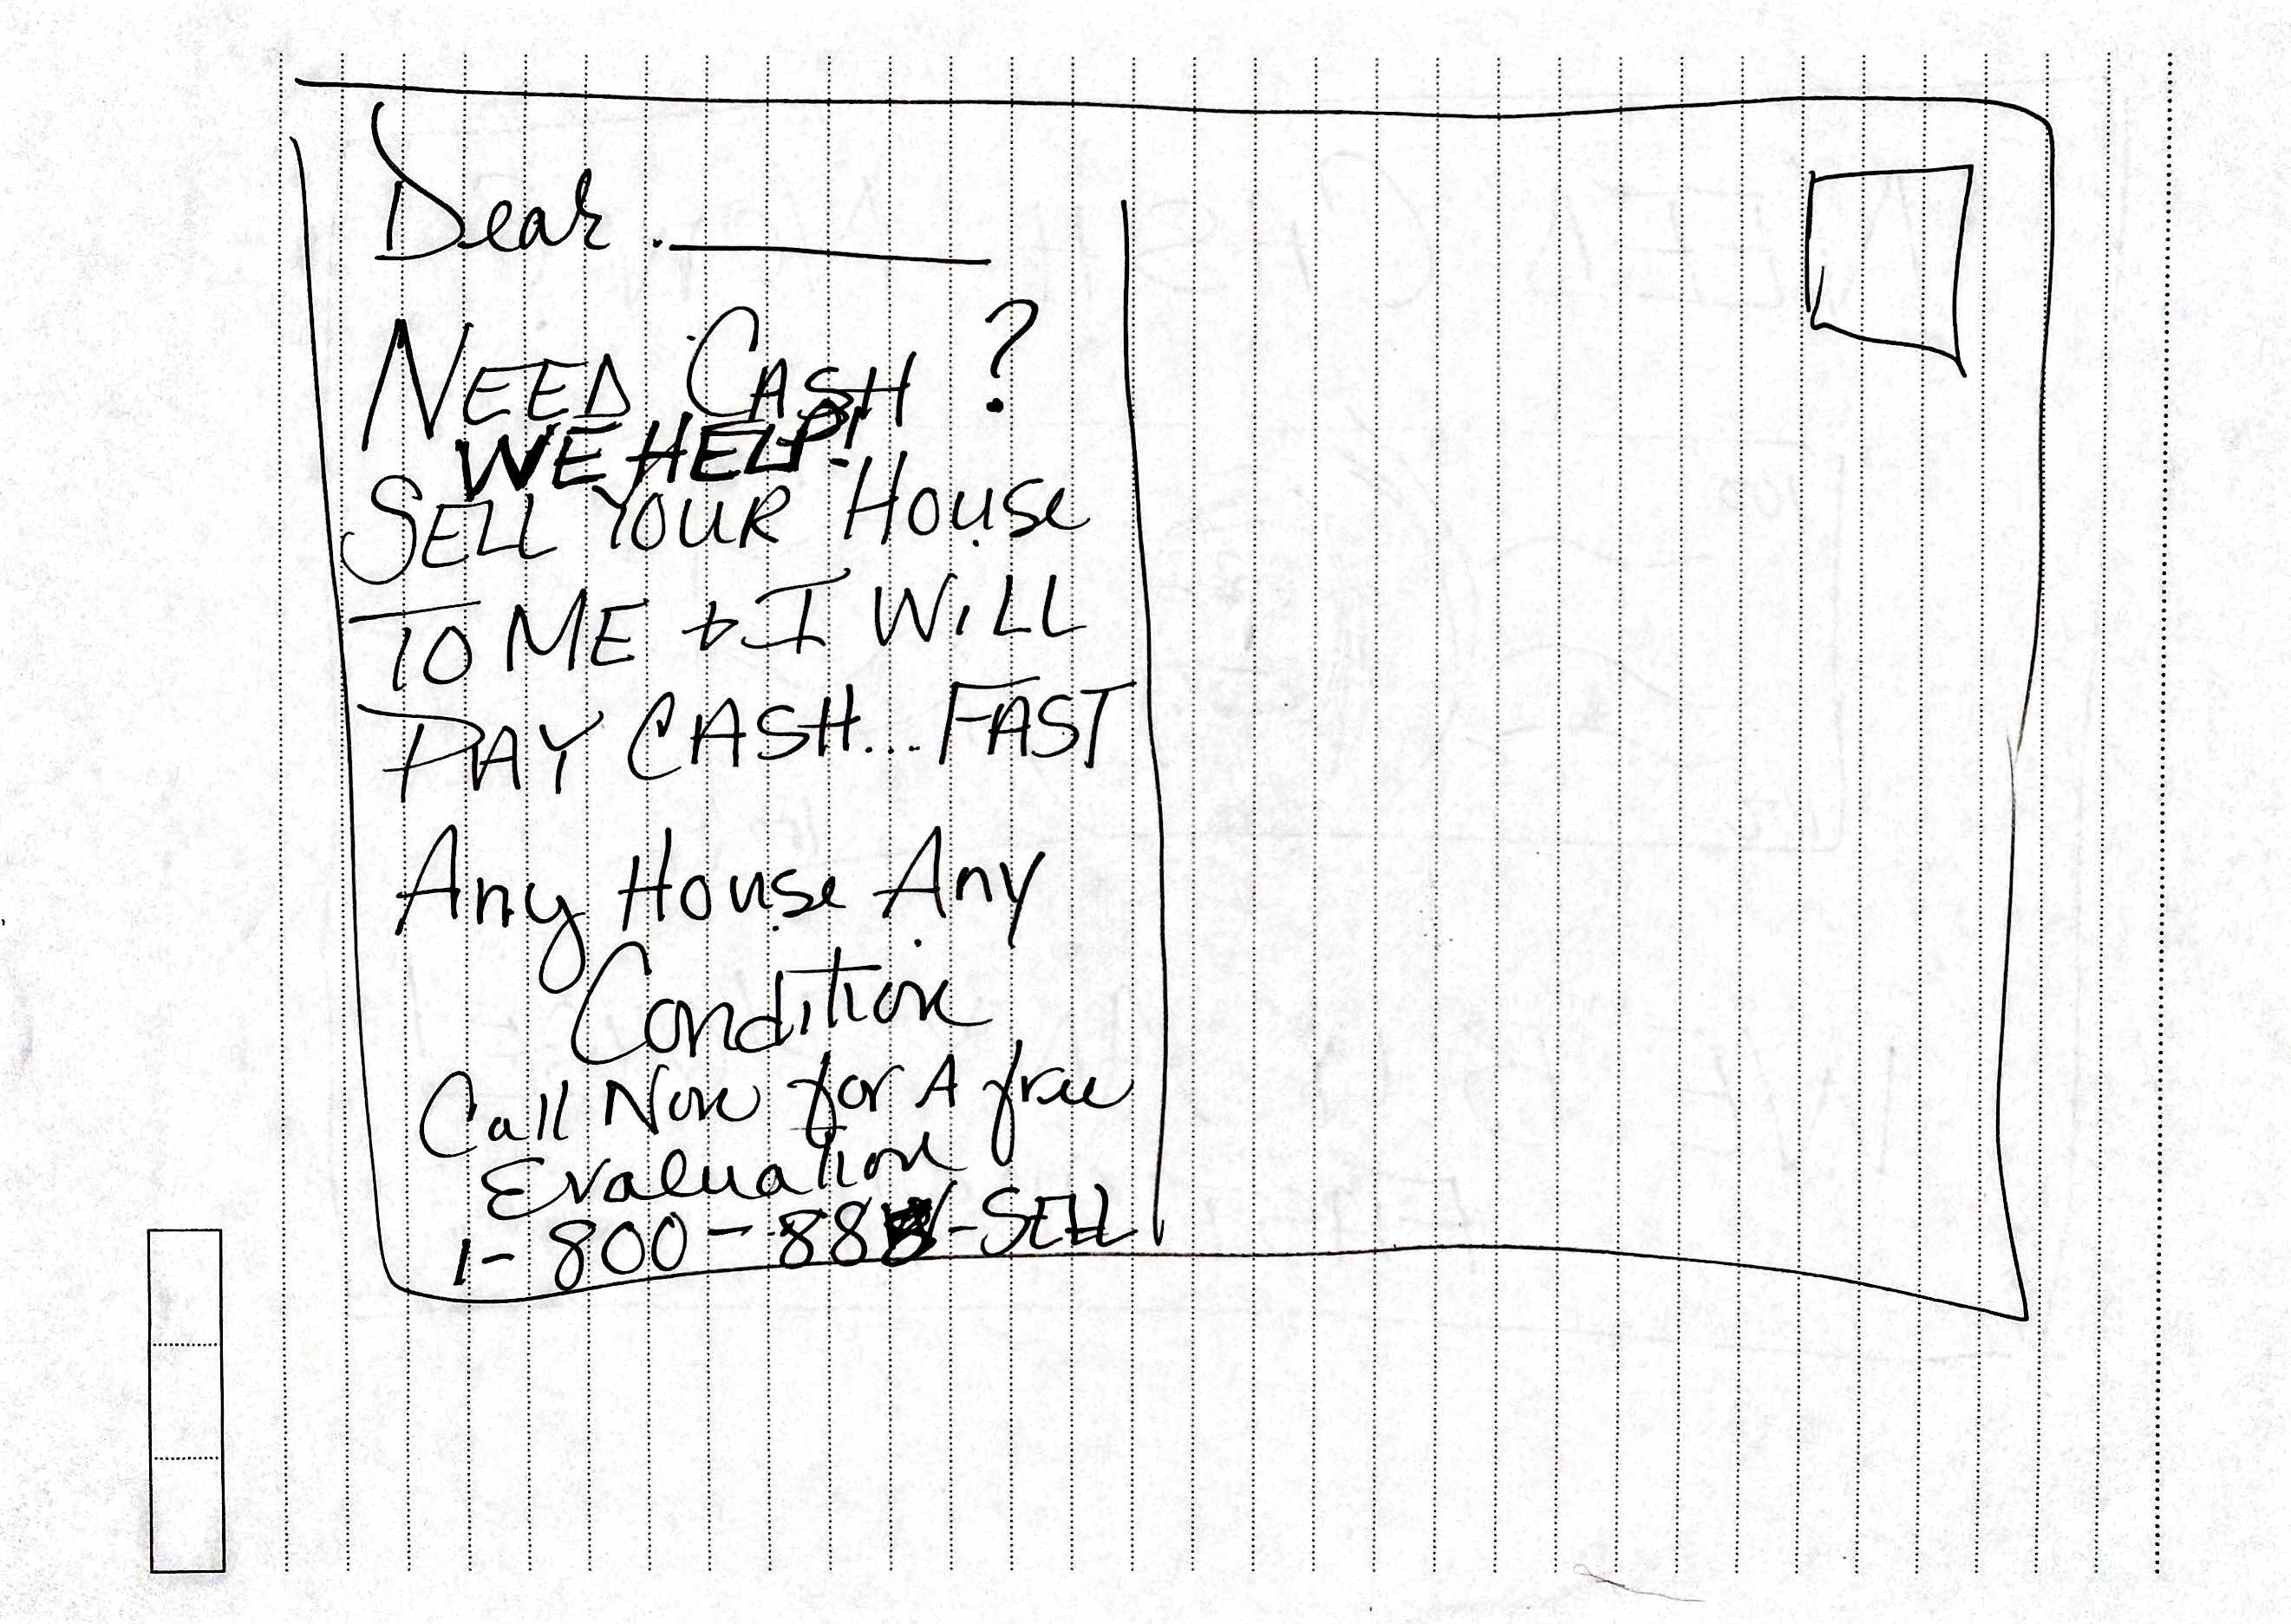 Dear ________
NEED CASH ?
WE HELP!
SELL YOUR House
TO ME & I WILL
PAY CASH... FAST
Any House Any
Condition
Call Now for A free
Evaluation
1-800-888-SELL